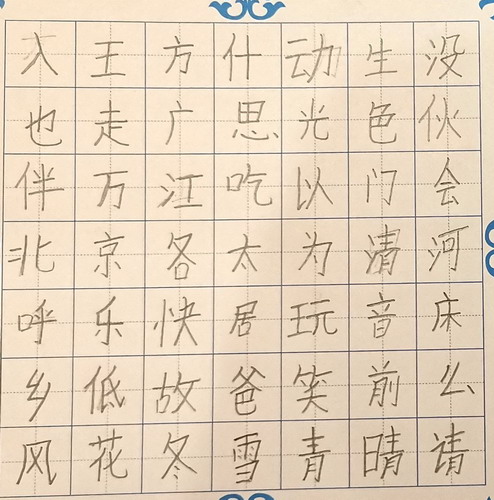 入王方什动生没
也走广思光色伙
伴万江吃以门会
北京各太为清河
呼乐快居玩音床
乡低故爸笑前么
风花冬雪青晴请